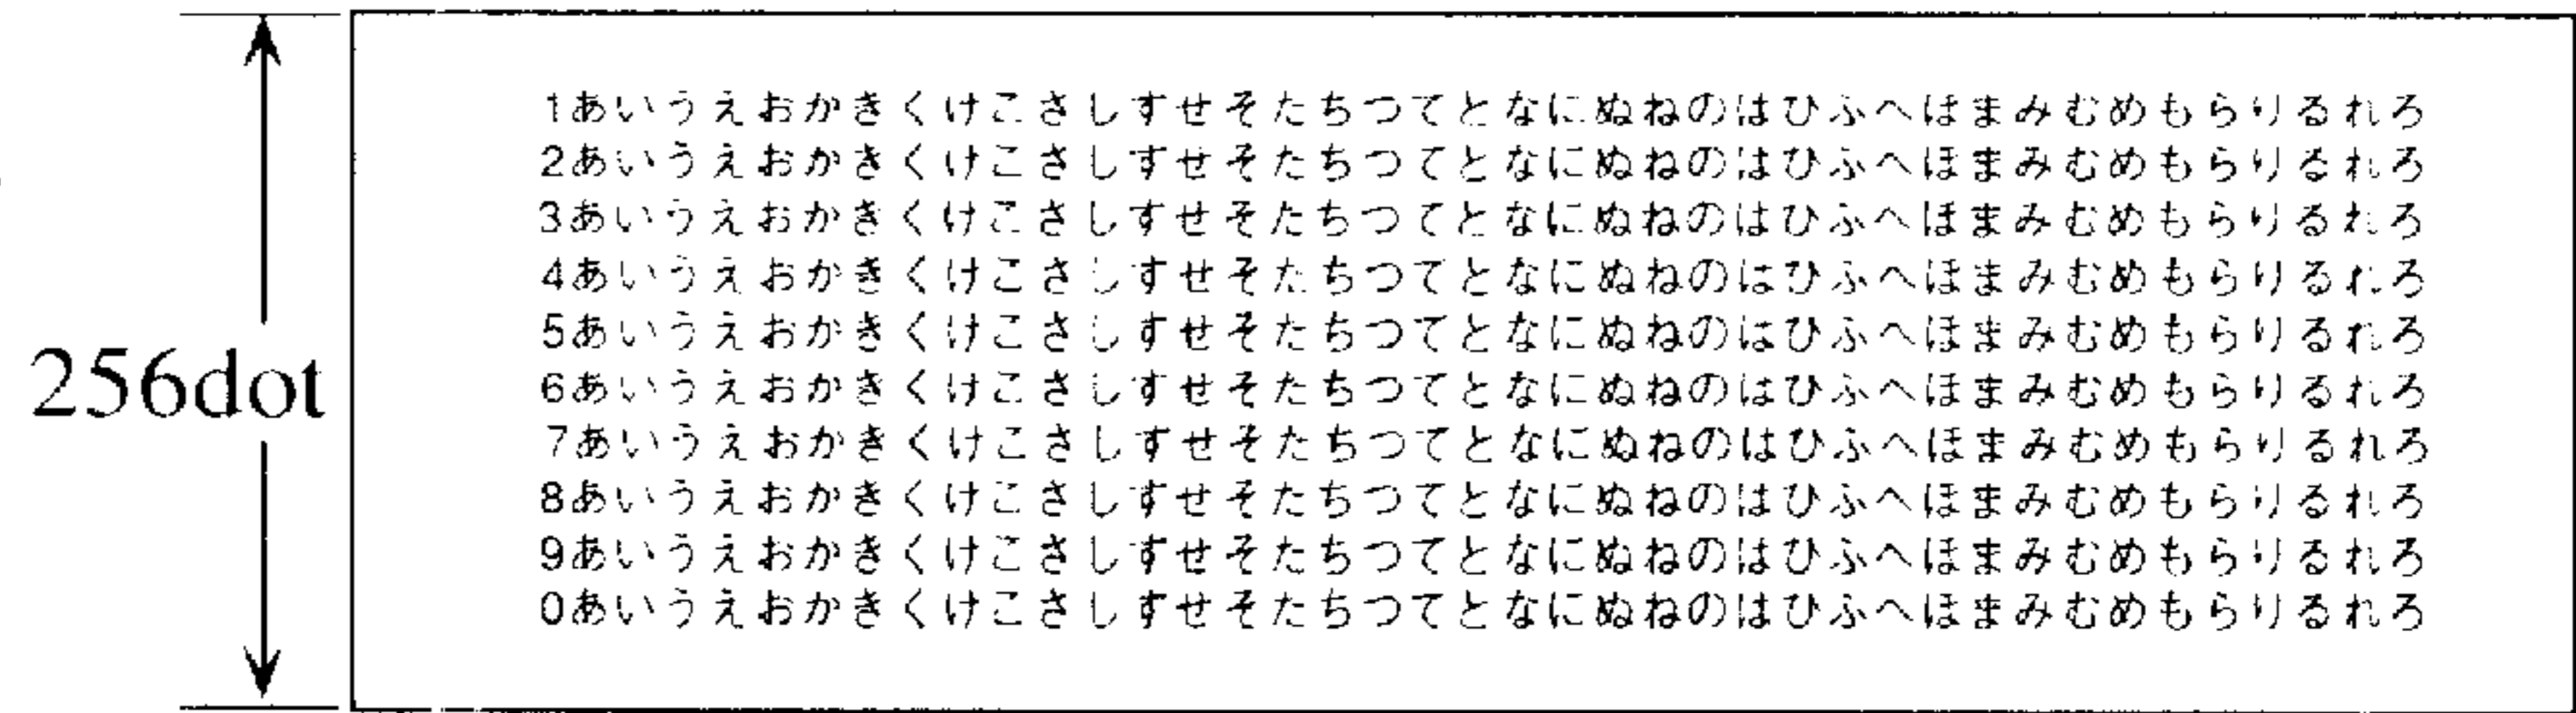 1あいうえおかきくけこさしすせそたちつてとなにぬねのはひふへほまみむめもらりるれろ
2あいうえおかきくけこさしすせそたちつてとなにぬねのはひふへほまみむめもらりるれろ
3あいうえおかきくけこさしすせそたちつてとなにぬねのはひふへほまみむめもらりるれろ
4あいうえおかきくけこさしすせそたちつてとなにぬねのはひふへほまみむめもらりるれろ
5あいうえおかきくけこさしすせそたちつてとなにぬねのはひふへほまみむめもらりるれろ
6あいうえおかきくけこさしすせそたちつてとなにぬねのはひふへほまみむめもらりるれろ
7あいうえおかきくけこさしすせそたちつてとなにぬねのはひふへほまみむめもらりるれろ
8あいうえおかきくけこさしすせそたちつてとなにぬねのはひふへほまみむめもらりるれろ
9あいうえおかきくけこさしすせそたちつてとなにぬねのはひふへほまみむめもらりるれろ
0あいうえおかきくけこさしすせそたちつてとなにぬねのはひふへほまみむめもらりるれろ
256dot